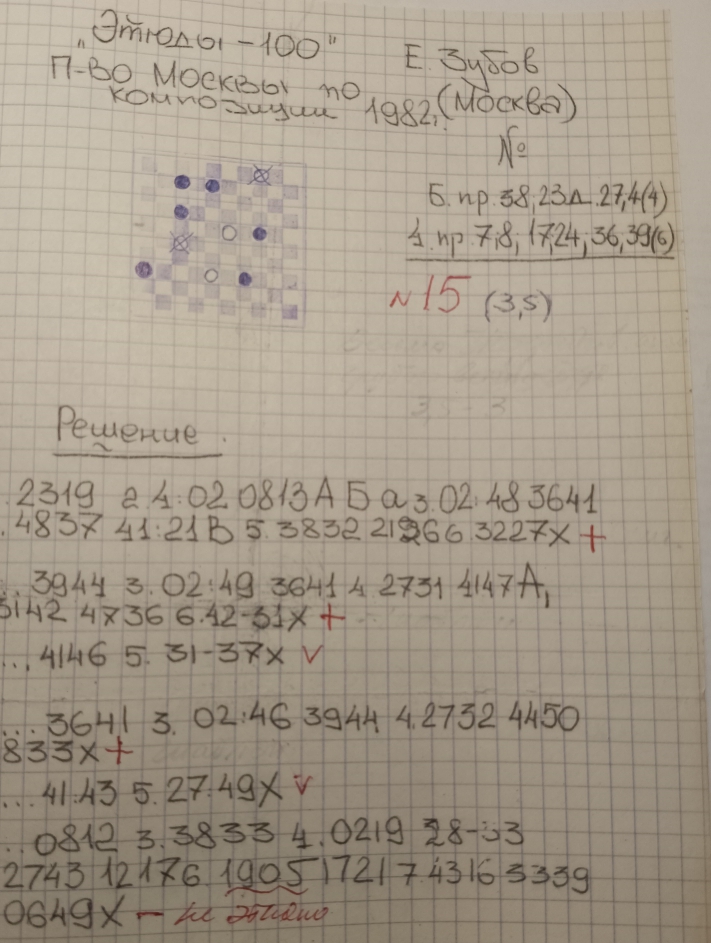 „Этюды – 100"
П-во Москвы по
композиции 1982г.
Е. Зубов
(Москва)
№
Б. пр. 38, 23 д. 27, 4 (4)
Ч. пр. 7, 8, 17, 24, 36, 39 (6)
N 15 (3,5)
Решение.
. 2319 2. 4:02 0813 А Б а 3. 02:48 3641
. 4837 41:21 В 5. 3832 2126 6. 3227х +
... 3944 3. 02:49 3641 4. 2731 4147 А,
3142 4736 6. 42-31х +
... 4146 5. 31-37х v
... 3641 3. 02:46 3944 4. 2732 4450
833х +
... 41:43 5. 27:49х v
... 0812 3. 3833 4. 0219 28-33
2743 1217 6. 1905 1721 7. 4316 3339
0649х – не этюдно